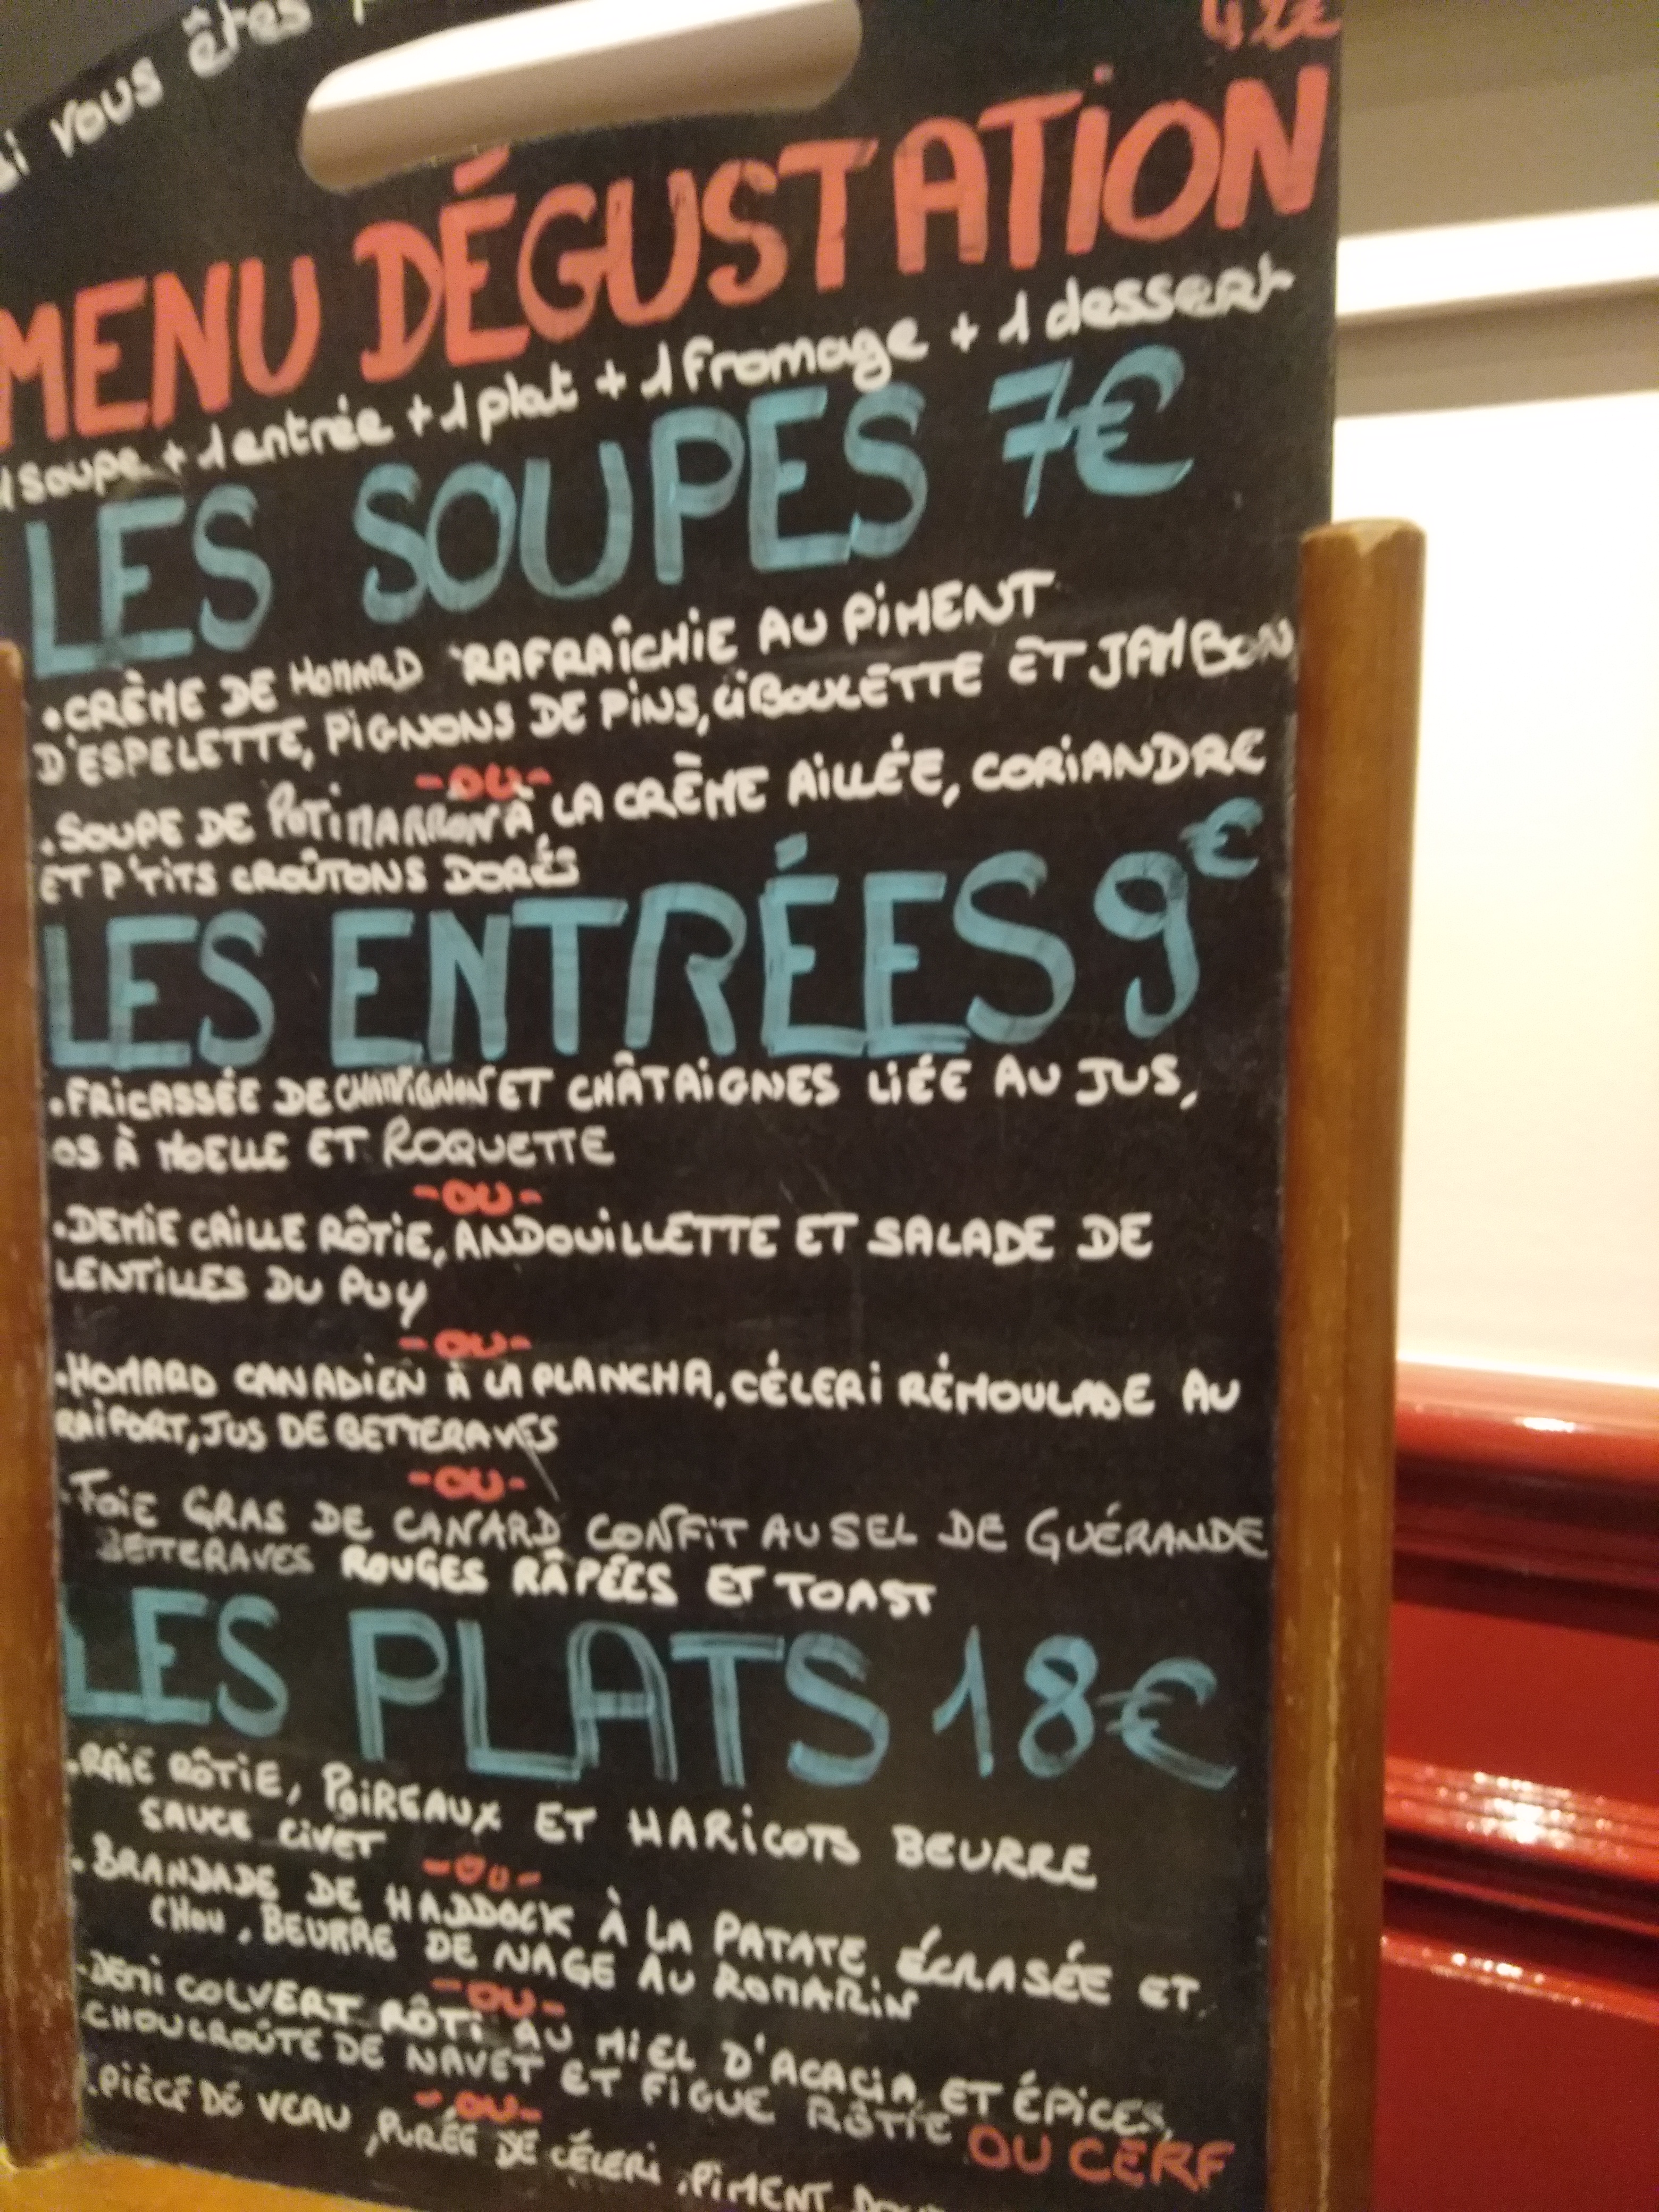 si vous êtes
42€
MENU DÉGUSTATION
1 soupe + 1 entrée + 1 plat + 1 fromage + 1 dessert
LES SOUPES 7€
• CRÈME DE HOMARD RAFRAÎCHIE AU PIMENT
D'ESPELETTE, PIGNONS DE PINS, CIBOULETTE ET JAMBON
-OU-
• SOUPE DE POTIMARRON À LA CRÈME AILLÉE, CORIANDRE
ET P'TITS CROÛTONS DORÉS
LES ENTRÉES 9€
• FRICASSÉE DE CHAMPIGNONS ET CHÂTAIGNES LIÉE AU JUS,
OS À MOELLE ET ROQUETTE
-OU-
• DEMIE CAILLE RÔTIE, ANDOUILLETTE ET SALADE DE
LENTILLES DU PUY
-OU-
• HOMARD CANADIEN À LA PLANCHA, CÉLERI RÉMOULADE AU
RAIFORT, JUS DE BETTERAVES
-OU-
• FOIE GRAS DE CANARD CONFIT AU SEL DE GUÉRANDE
BETTERAVES ROUGES RÂPÉES ET TOAST
LES PLATS 18€
• RAIE RÔTIE, POIREAUX ET HARICOTS BEURRE
SAUCE CIVET
-OU-
• BRANDADE DE HADDOCK À LA PATATE ÉCRASÉE ET
CHOU, BEURRE DE NAGE AU ROMARIN
-OU-
• DEMI COLVERT RÔTI AU MIEL D'ACACIA ET ÉPICES,
CHOUCROÛTE DE NAVET ET FIGUE RÔTIE OU CERF
-OU-
• PIÈCE DE VEAU, PURÉE DE CÉLERI, PIMENT